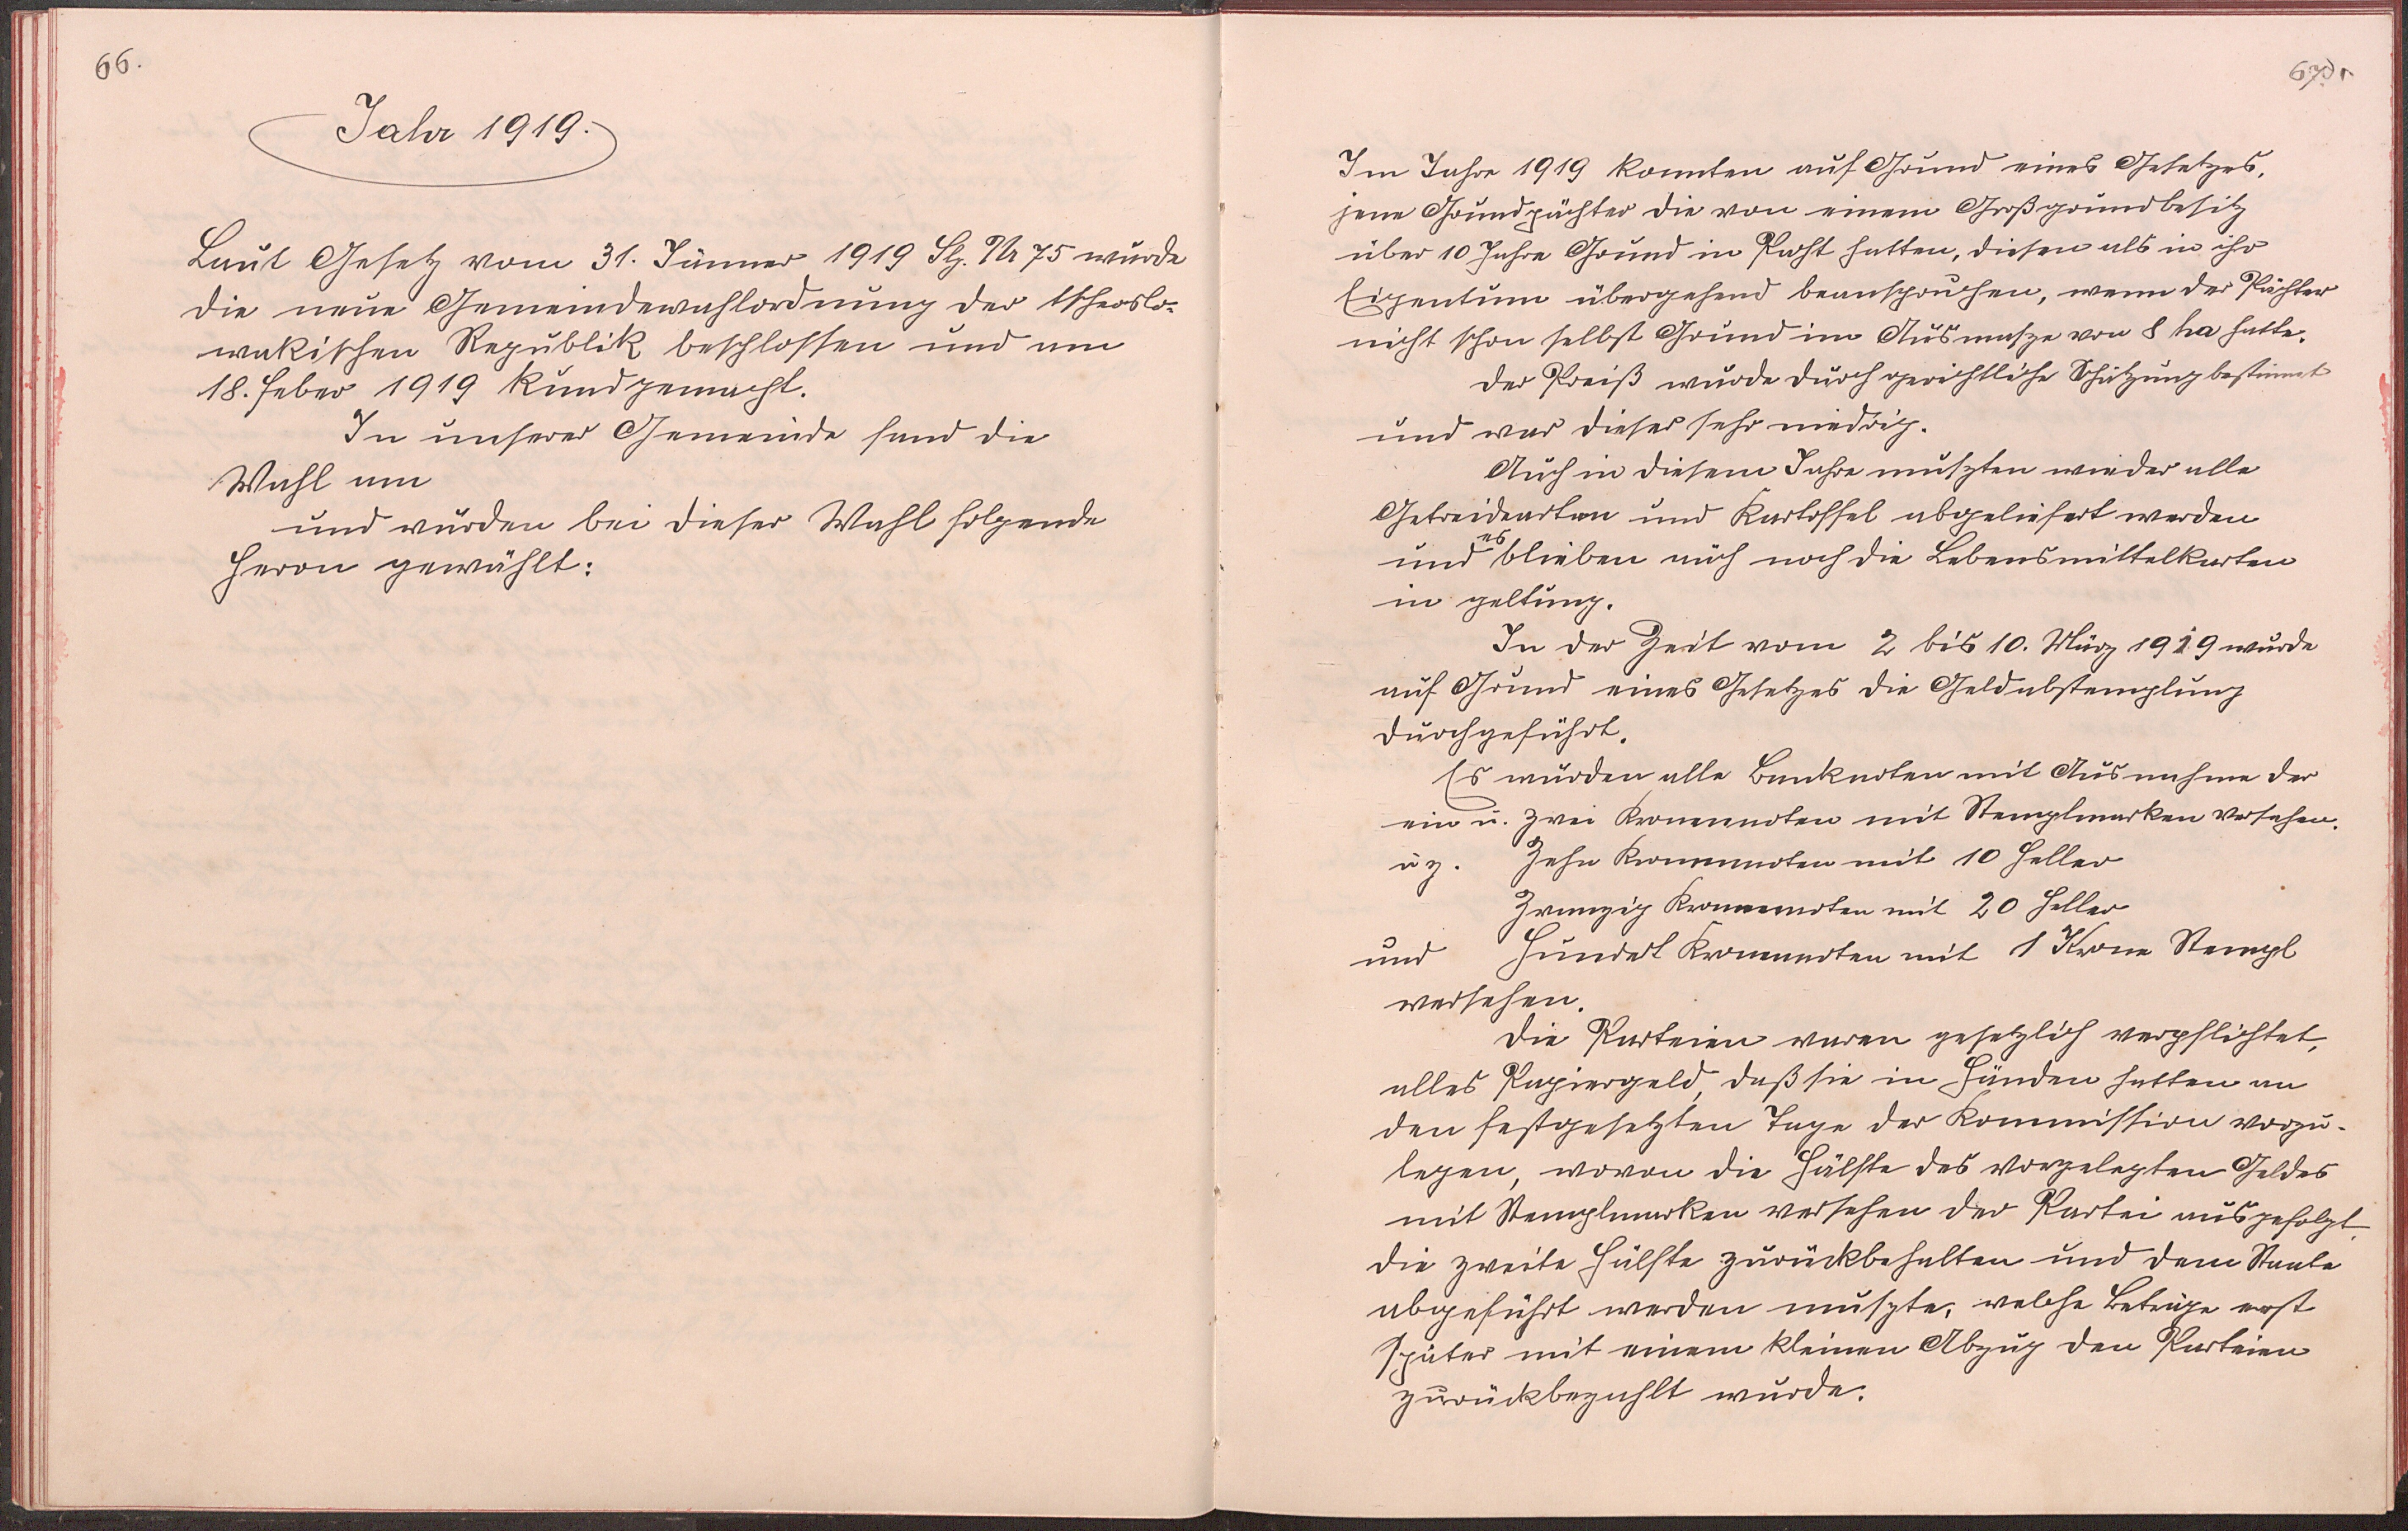 66.
Jahr 1919.
Laut Gesetz vom 31. Jänner 1919 Slg. Nr 75 wurde
die neue Gemeindewahlordnung der tscheoslo-
wakischen Republik beschlossen und am
18. Feber 1919 kundgemacht.
In unserer Gemeinde fand die
Wahl am
und wurden bei dieser Wahl folgende
Herrn gewählt:
Im Jahre 1919 konnten auf Grund eines Gesetzes,
jene Grundpächter die von einem Großgrundbesitz
über 10 Jahre Grund in Pacht hatten, diesen als in ihr
Eigentum übergehend beanspruchen, wenn der Pächter
nicht schon selbst Grund im Ausmasze von 8 ha hatte.
Der Preiß wurde durch gerichtliche Schätzung bestimmt
und war dieser sehr niedrig.
Auch in diesem Jahre muszten wieder alle
Getreidearten und Kartoffel abgeliefert werden
und es blieben auch noch die Lebensmittelkarten
in geltung.
In der Zeit vom 2 bis 10. März 1919 wurde
auf Grund eines Gesetzes die Geldabstemplung
durchgeführt.
Es wurden alle Banknoten mit Ausnahme der
ein u. zwei Kronennoten mit Stemplmarken versehen.
u z. Zehn Kronennoten mit 10 Heller
Zwanzig Kronennoten mit 20 Heller
und Hundert Kronennoten mit 1 Krone Stempl
versehen.
Die Parteien waren gesetzlich verpflichtet,
alles Papiergeld, daß sie in Händen hatten an
den festgesetzten Tage der Kommission vorzu-
legen, wovon die Hälfte des vorgelegten Geldes
mit Stemplmarken versehen der Partei ausgefolgt,
die zweite Hälfte zurückbehalten und dem Staate
abgeführt werden muszte, welche Beträge erst
später mit einem kleinen Abzug den Parteien
zurückbezahlt wurde.